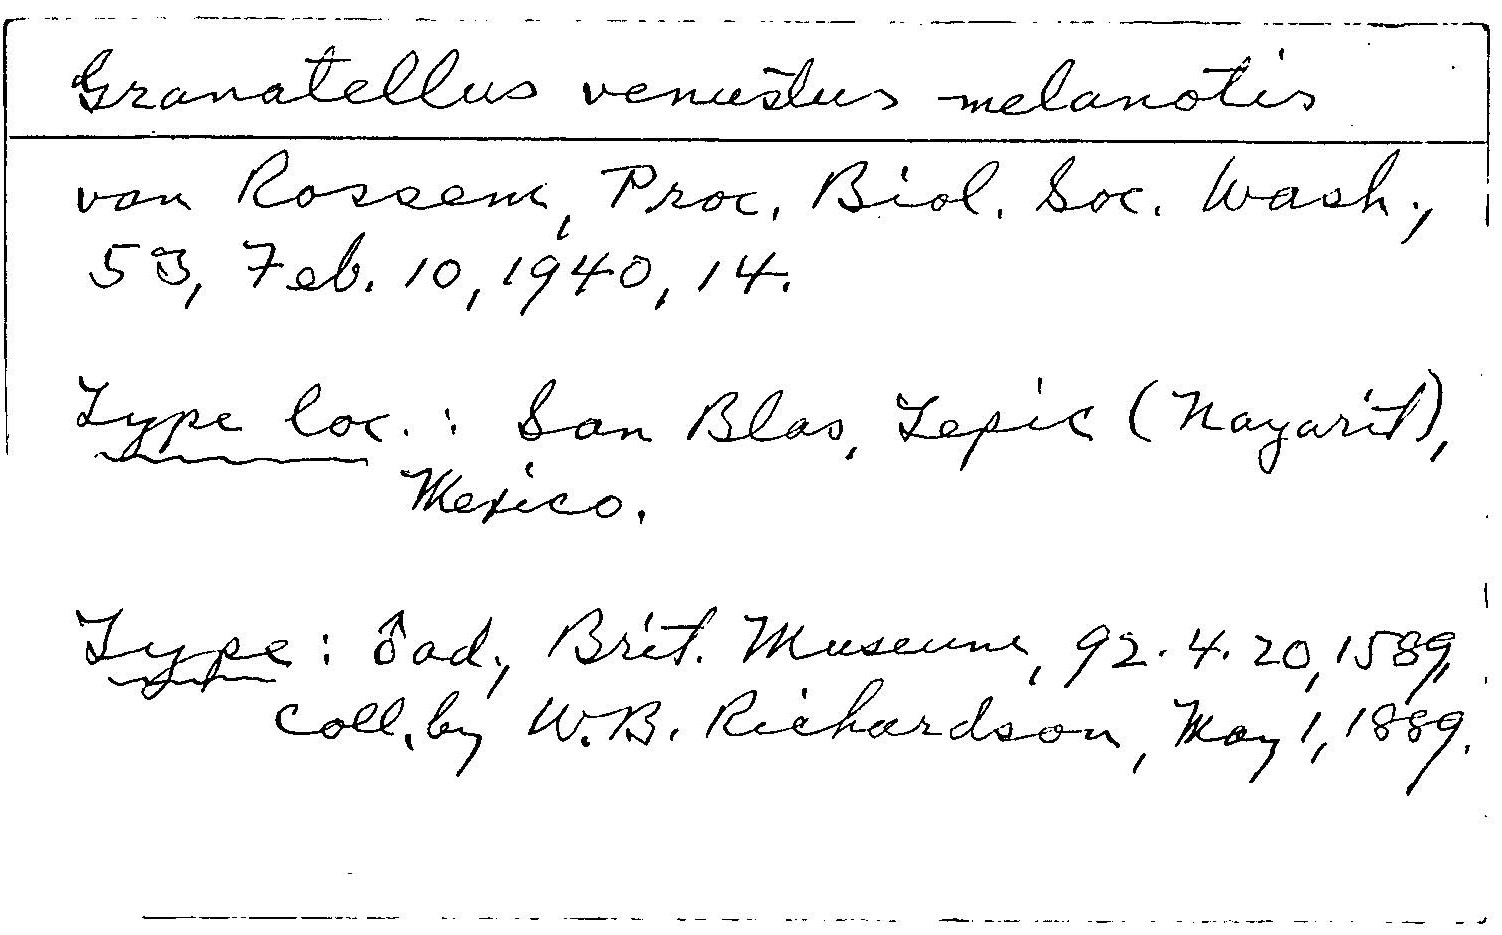 Granatellus venustus melanotis
van Rossem, Proc. Biol. Soc. Wash.,
53, Feb. 10, 1940, 14.
Type loc.: San Blas, Tepic (Nayarit),
Mexico.
Type: ♂ ad., Brit. Museum, 92.4.20,1589,
coll. by W.B. Richardson, May 1, 1889.